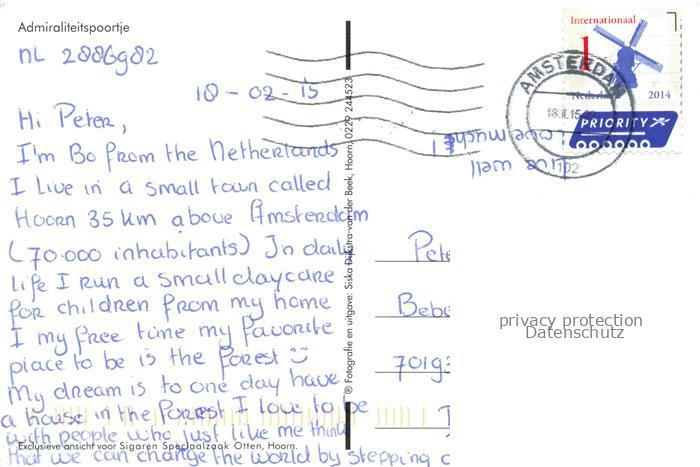 Admiraliteitspoortje
NL 2886902
18-02-15
Hi Peter,
I'm Bo from the Netherlands
I live in a small town called
Hoorn 35 km above Amsterdam
(70.000 inhabitants) In daily
life I run a small daycare
for children from my home
I my free time my favorite
place to be is the forest
My dream is to one day have
a house in the forest I love to be
with people who just like me think
that we can change the world by stepping
Exclusieve ansicht voor Sigaren Speciaalzaak Otten, Hoorn.
® Fotografie en uitgave: Siska Dijkstra-van der Beek, Hoorn, 0229 244523
Internationaal
1
Nederland 2014
PRIORITY
AMSTERDAM
102
Live well
Love much
Pete
Bebe
7019
privacy protection
Datenschutz